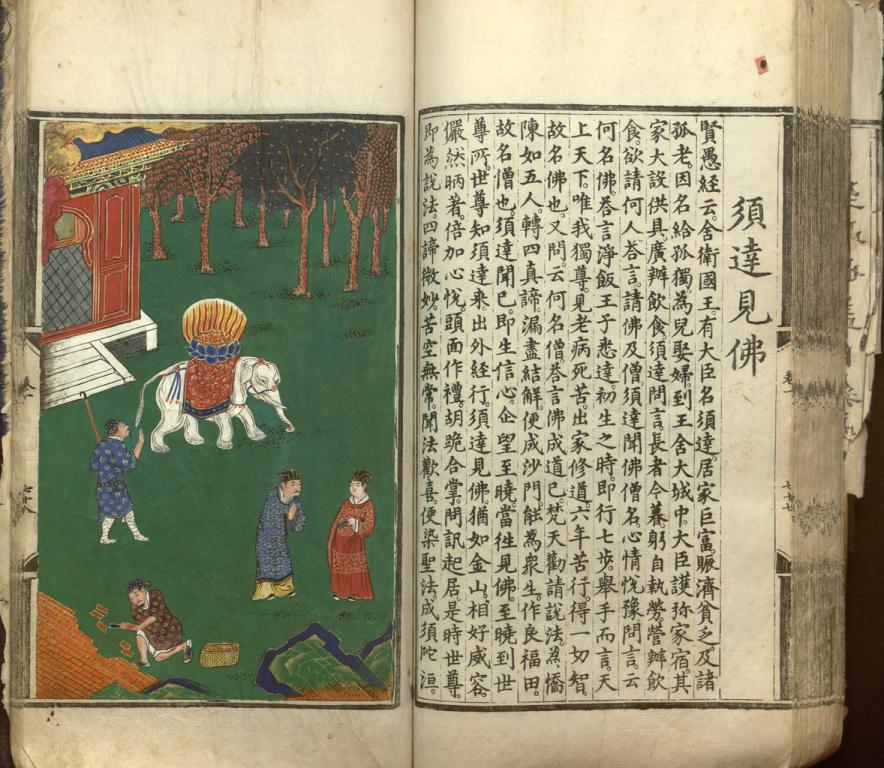 須達見佛
賢愚經云。舍衛國王。有大臣名須達。居家巨富。賑濟貧乏。及諸
孤老。因名給孤獨。為兒娶婦。到王舍大城中。大臣護彌家宿。其
家大設供具。廣辦飲食。須達問言。長者今暮。躬自執勞。營辦飲
食。欲請何人。荅言。請佛及僧。須達聞佛僧名。心情悅豫。問言。云
何名佛。荅言。淨飯王子悉達。初生之時。即行七步。舉手而言。天
上天下。唯我獨尊。見老病死苦。出家修道。六年苦行。得一切智。
故名佛也。又問。云何名僧。荅言。佛成道已。梵天勸請說法。為憍
陳如五人。轉四真諦。漏盡結解。便成沙門。能為衆生。作良福田。
故名僧也。須達聞已。即生信心。企望至曉。當往見佛。至曉到世
尊所。世尊知須達來。出外經行。須達見佛。猶如金山。相好威容。
儼然昞著。倍加心悅。頭面作禮。胡跪合掌。問訊起居。是時世尊。
即為說法。四諦微妙。苦空無常。聞法歡喜。便染聖法。成須陀洹。
卷一
七十七